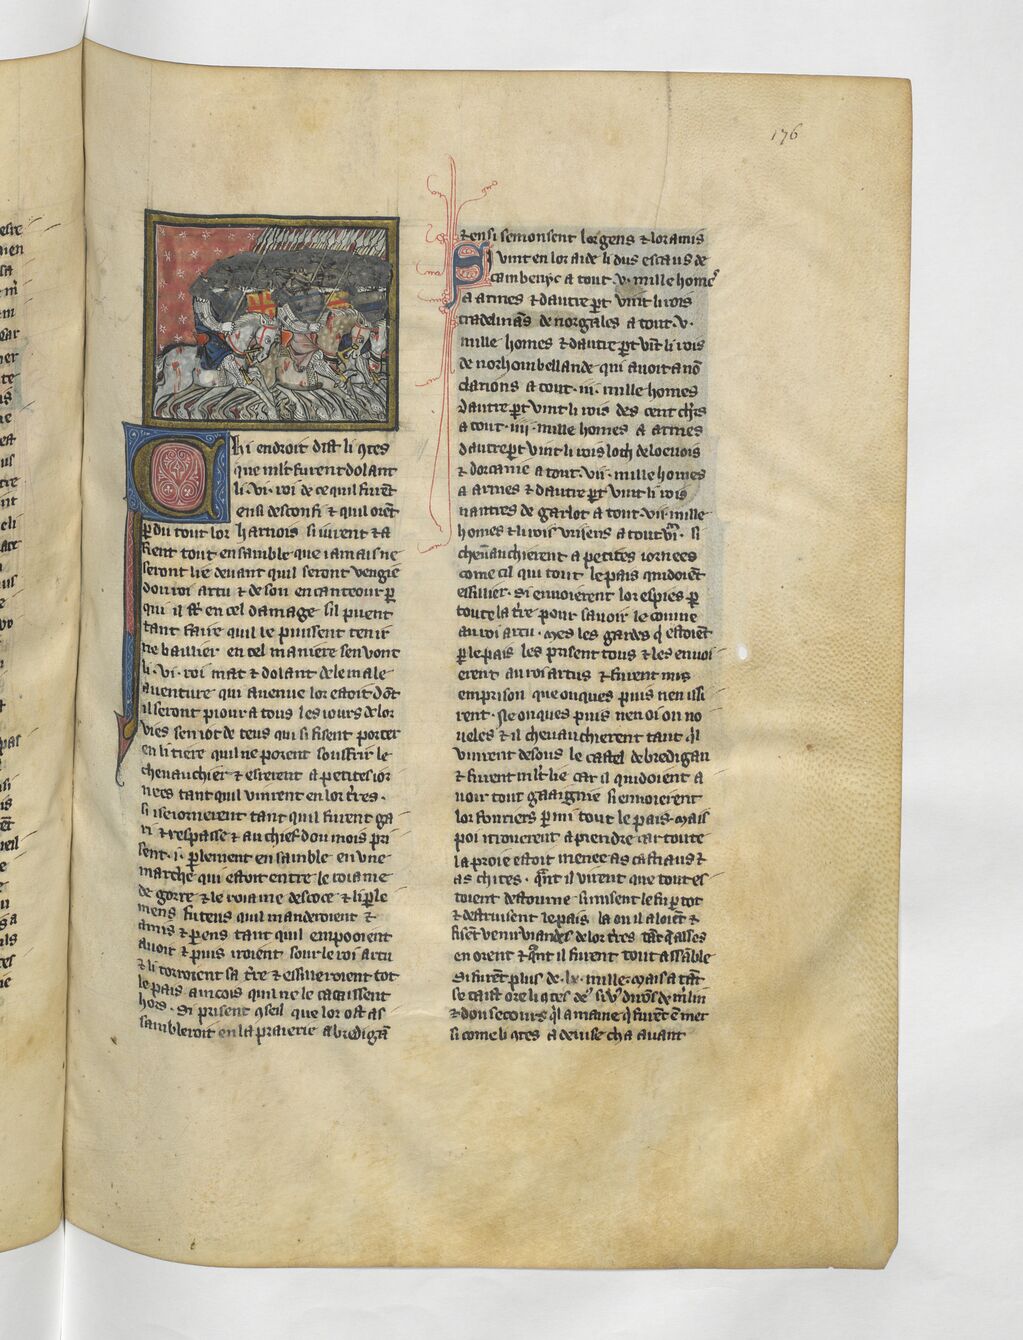 176
Chi endroit dist li 9tes
que mlt furent dolant
li .vi. roi de ce quil furēt
ensi desconfi & quil orēt
ꝑdu tout lor harnois si iurent & a
fient tout ensamble que iamais ne
seront lie deuant quil seront vengie
dou roi artu & de son encanteour ꝑ
qui il st̄ en cel damage sil pueent
tant faire quil le puissent tenir
ne baillier en tel maniere sen vont
li .vi. roi mat & dolant de le male
auenture qui auenue lor estoit dōt
il seront piour a tous les iours de lor
vies sen iot de teus qui si fisent porter
en litiere quil ne porent souffrir le
cheuauchier & esrerent a petites ior
nees tant quil vinrent en lor t̄res.
si seiornerent tant quil furent ga
ri & respasse & au chief dou mois pri
sent .i. ꝑlement ensamble en vne
marche qui estoit entre le roiame
de gorre & le roiaume descoce & li ꝑle
mens fu tens quil manderoient &
amis & ꝑens tant quil empooient
auoir & puis iroient sour le roi artu
& li torroient sa t̄re & essilleroient tot
le pais ancois quil ne le cacaissent
hors. Si prisent 9seil que lor ost as
sambleroit en la praierie a bredigā
& ensi semonsent lor gens & lor amis
Si vint en lor aide li dus escaus de
cambenyc a tout .v. mille homes
a armes & dautre ꝑt vint li rois
tradelināns de norgales a tout .v.
mille homes & dautre ꝑt vīt li rois
de norhombellande qui auoit a nō
clarions a tout .iii. mille homes
dautre ꝑt vint li rois des cent chrs
a tout .iiii. mille homes a armes
dautre ꝑt vint li rois loth de loenois
& dorcanie a tout .vii. mille homes
a armes & dautre ꝑt vint li rois
nantres de garlot a tout .vii. mille
homes & li rois vriens a tout .vi.m si
cheuauchierent a petites iornees
come cil qui tout le pais quidoiēt
essillier. Si enuoierent lor espies ꝑ
toute la t̄re pour sauoir le comne
au roi artu. Mes les gardes q̄ estoiēt
ꝑ le pais les prisent tous & les enuoi
erent au roi artus & furent mis
emprison que onques puis nen issi
rent. Ne onques puis nen oi on no
ueles & il cheuauchierent tant ql
vinrent desous le castel de bredigan
& furent mlt lie car il quidoient a
uoir tout gaaignie si enuoierent
lor fouriers ꝑmi tout le pais. Mais
poi trouerent a prendre car toute
la proie estoit menee as castiaus &
as chites. Qnt il virent que tout es
toient destourne si misent le fu ꝑ tot
& destruisent le pais la ou il aloiēt &
fisēt venir viandes de lor t̄res tāt q̄ asses
en orent & qnt il furent tout assāble
si furēt plus de .lx. mille. Mais a tāt
se taist ore li 9tes
& dou secours ql amaine q̄ furēt
si come li 9tes a deuise cha auant